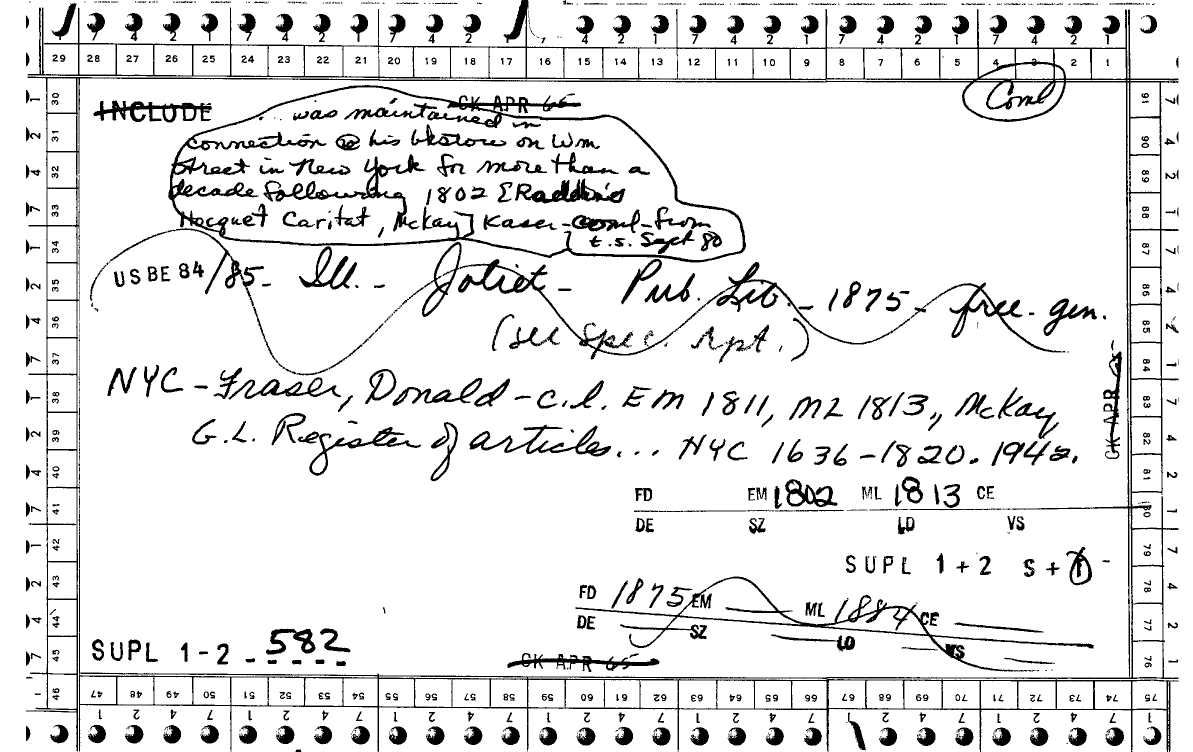 7 4 2 1 7 4 2 1 7 4 2 1 7 4 2 1 7 4 2 1 7 4 2 1 7 4 2 1
29 28 27 26 25 24 23 22 21 20 19 18 17 16 15 14 13 12 11 10 9 8 7 6 5 4 3 2 1
Coml
INCLUDE
CK APR 65
... was maintained in
connection @ his bkstore on Wm
Street in New York for more than a
decade following 1802 [Raddin's
Hocquet Caritat, McKay] Kaser-coml-from
t.s. Sept 80
US BE 84/85- Ill. - Joliet - Pub. Lib. - 1875 - free. gen.
(see Spec. Rpt.)
NYC - Fraser, Donald - c.l. EM 1811, ML 1813, McKay,
G.L. Register of articles... NYC 1636-1820. 1942.
CK APR
FD EM 1802 ML 1813 CE
DE SZ LD VS
SUPL 1+2 S+1 -
FD 1875 EM ML 1884 CE
DE SZ LD VS
SUPL 1-2 - 582
CK APR 65
30 31 32 33 34 35 36 37 38 39 40 41 42 43 44 45 46
91 90 89 88 87 86 85 84 83 82 81 80 79 78 77 76 75
47 48 49 50 51 52 53 54 55 56 57 58 59 60 61 62 63 64 65 66 67 68 69 70 71 72 73 74
1 2 4 7 1 2 4 7 1 2 4 7 1 2 4 7 1 2 4 7 1 2 4 7 1 2 4 7